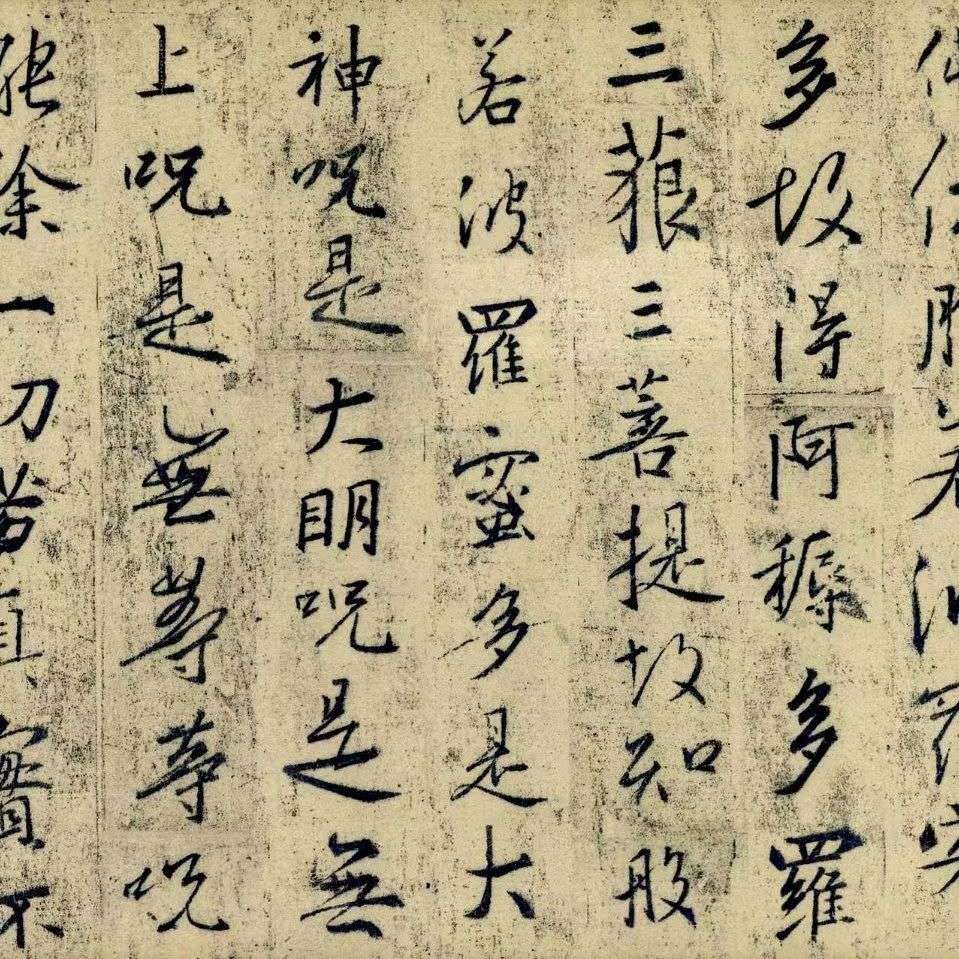 佛依般若波羅蜜
多故得阿耨多羅
三藐三菩提故知般
若波羅蜜多是大
神呪是大明呪是無
上呪是無等等呪
能除一切苦真實不